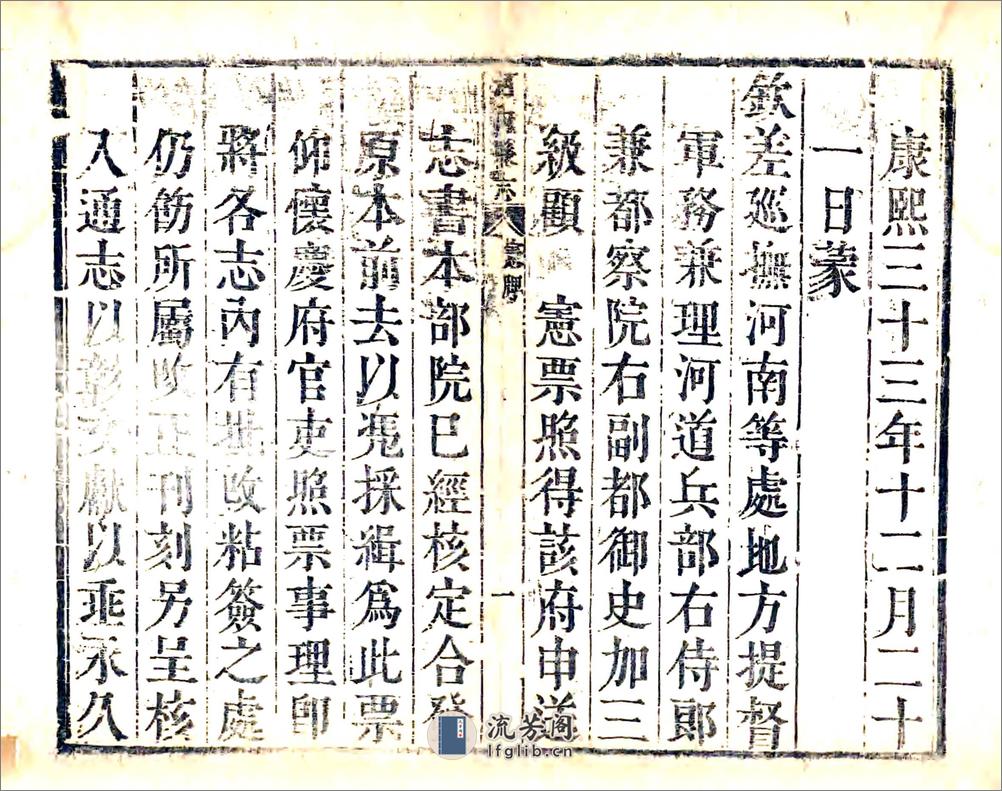 康熙三十三年十二月二十
一日蒙
欽差廵撫河南等處地方提督
軍務兼理河道兵部右侍郎
兼都察院右副都御史加三
級顧 憲票照得該府申送
憲牌
一
志書本部院已經核定合發
原本前去以凴採緝爲此票
仰懷慶府官吏照票事理卽
將各志內有批改粘簽之處
仍飭所屬改正刊刻另呈核
入通志以彰文獻以垂永久
流芳阁
lfglib.cn